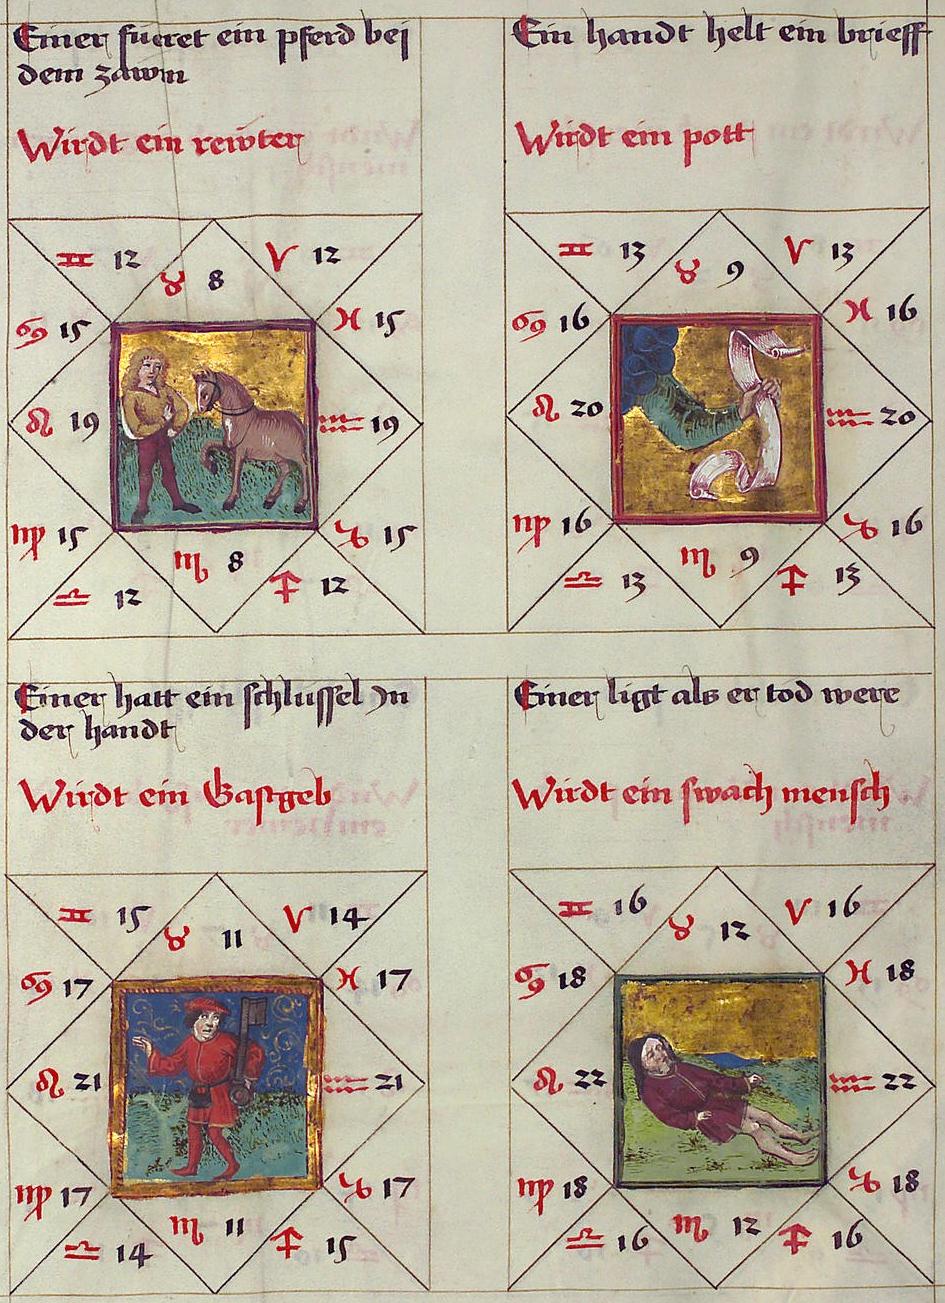 Einer fueret ein pferd bei
dem zawm
Wirdt ein rewter
♊ 12 ♉ 8 ♈ 12
♋ 15 ♓ 15
♌ 19 ♒ 19
♍ 15 ♑ 15
♎ 12 ♏ 8 ♐ 12
Ein handt helt ein brieff
Wirdt ein pott
♊ 13 ♉ 9 ♈ 13
♋ 16 ♓ 16
♌ 20 ♒ 20
♍ 16 ♑ 16
♎ 13 ♏ 9 ♐ 13
Einer hatt ein schlussel Jn
der handt
Wirdt ein Gastgeb
♊ 15 ♉ 11 ♈ 14
♋ 17 ♓ 17
♌ 21 ♒ 21
♍ 17 ♑ 17
♎ 14 ♏ 11 ♐ 15
Einer ligt als er tod were
Wirdt ein swach mensch
♊ 16 ♉ 12 ♈ 16
♋ 18 ♓ 18
♌ 22 ♒ 22
♍ 18 ♑ 18
♎ 16 ♏ 12 ♐ 16